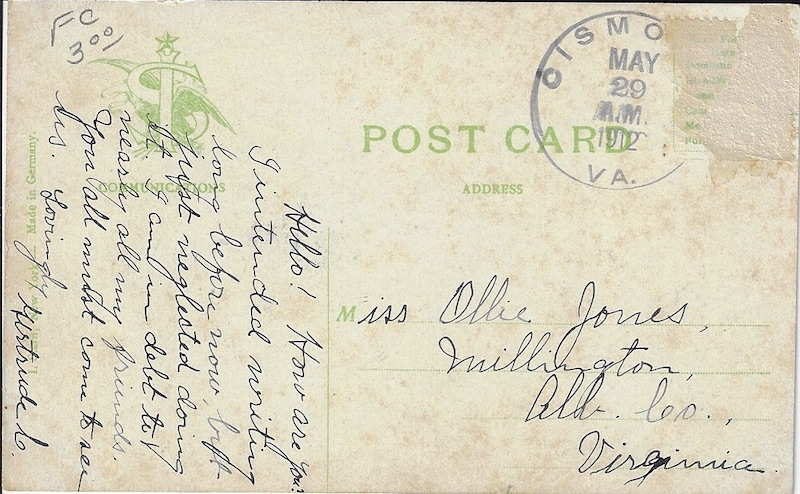 FCO
301
CISMO
MAY
29
A.M.
1912
VA.
POST CARD
COMMUNICATIONS
ADDRESS
Made in Germany.
Hello! How are you?
I intended writing
long before now, but
just neglected doing
it. I am in debt to
nearly all my friends.
You all must come to see
us. Lovingly
Gertrude C.
Miss Ollie Jones,
Millington,
Alb. Co.,
Virginia.